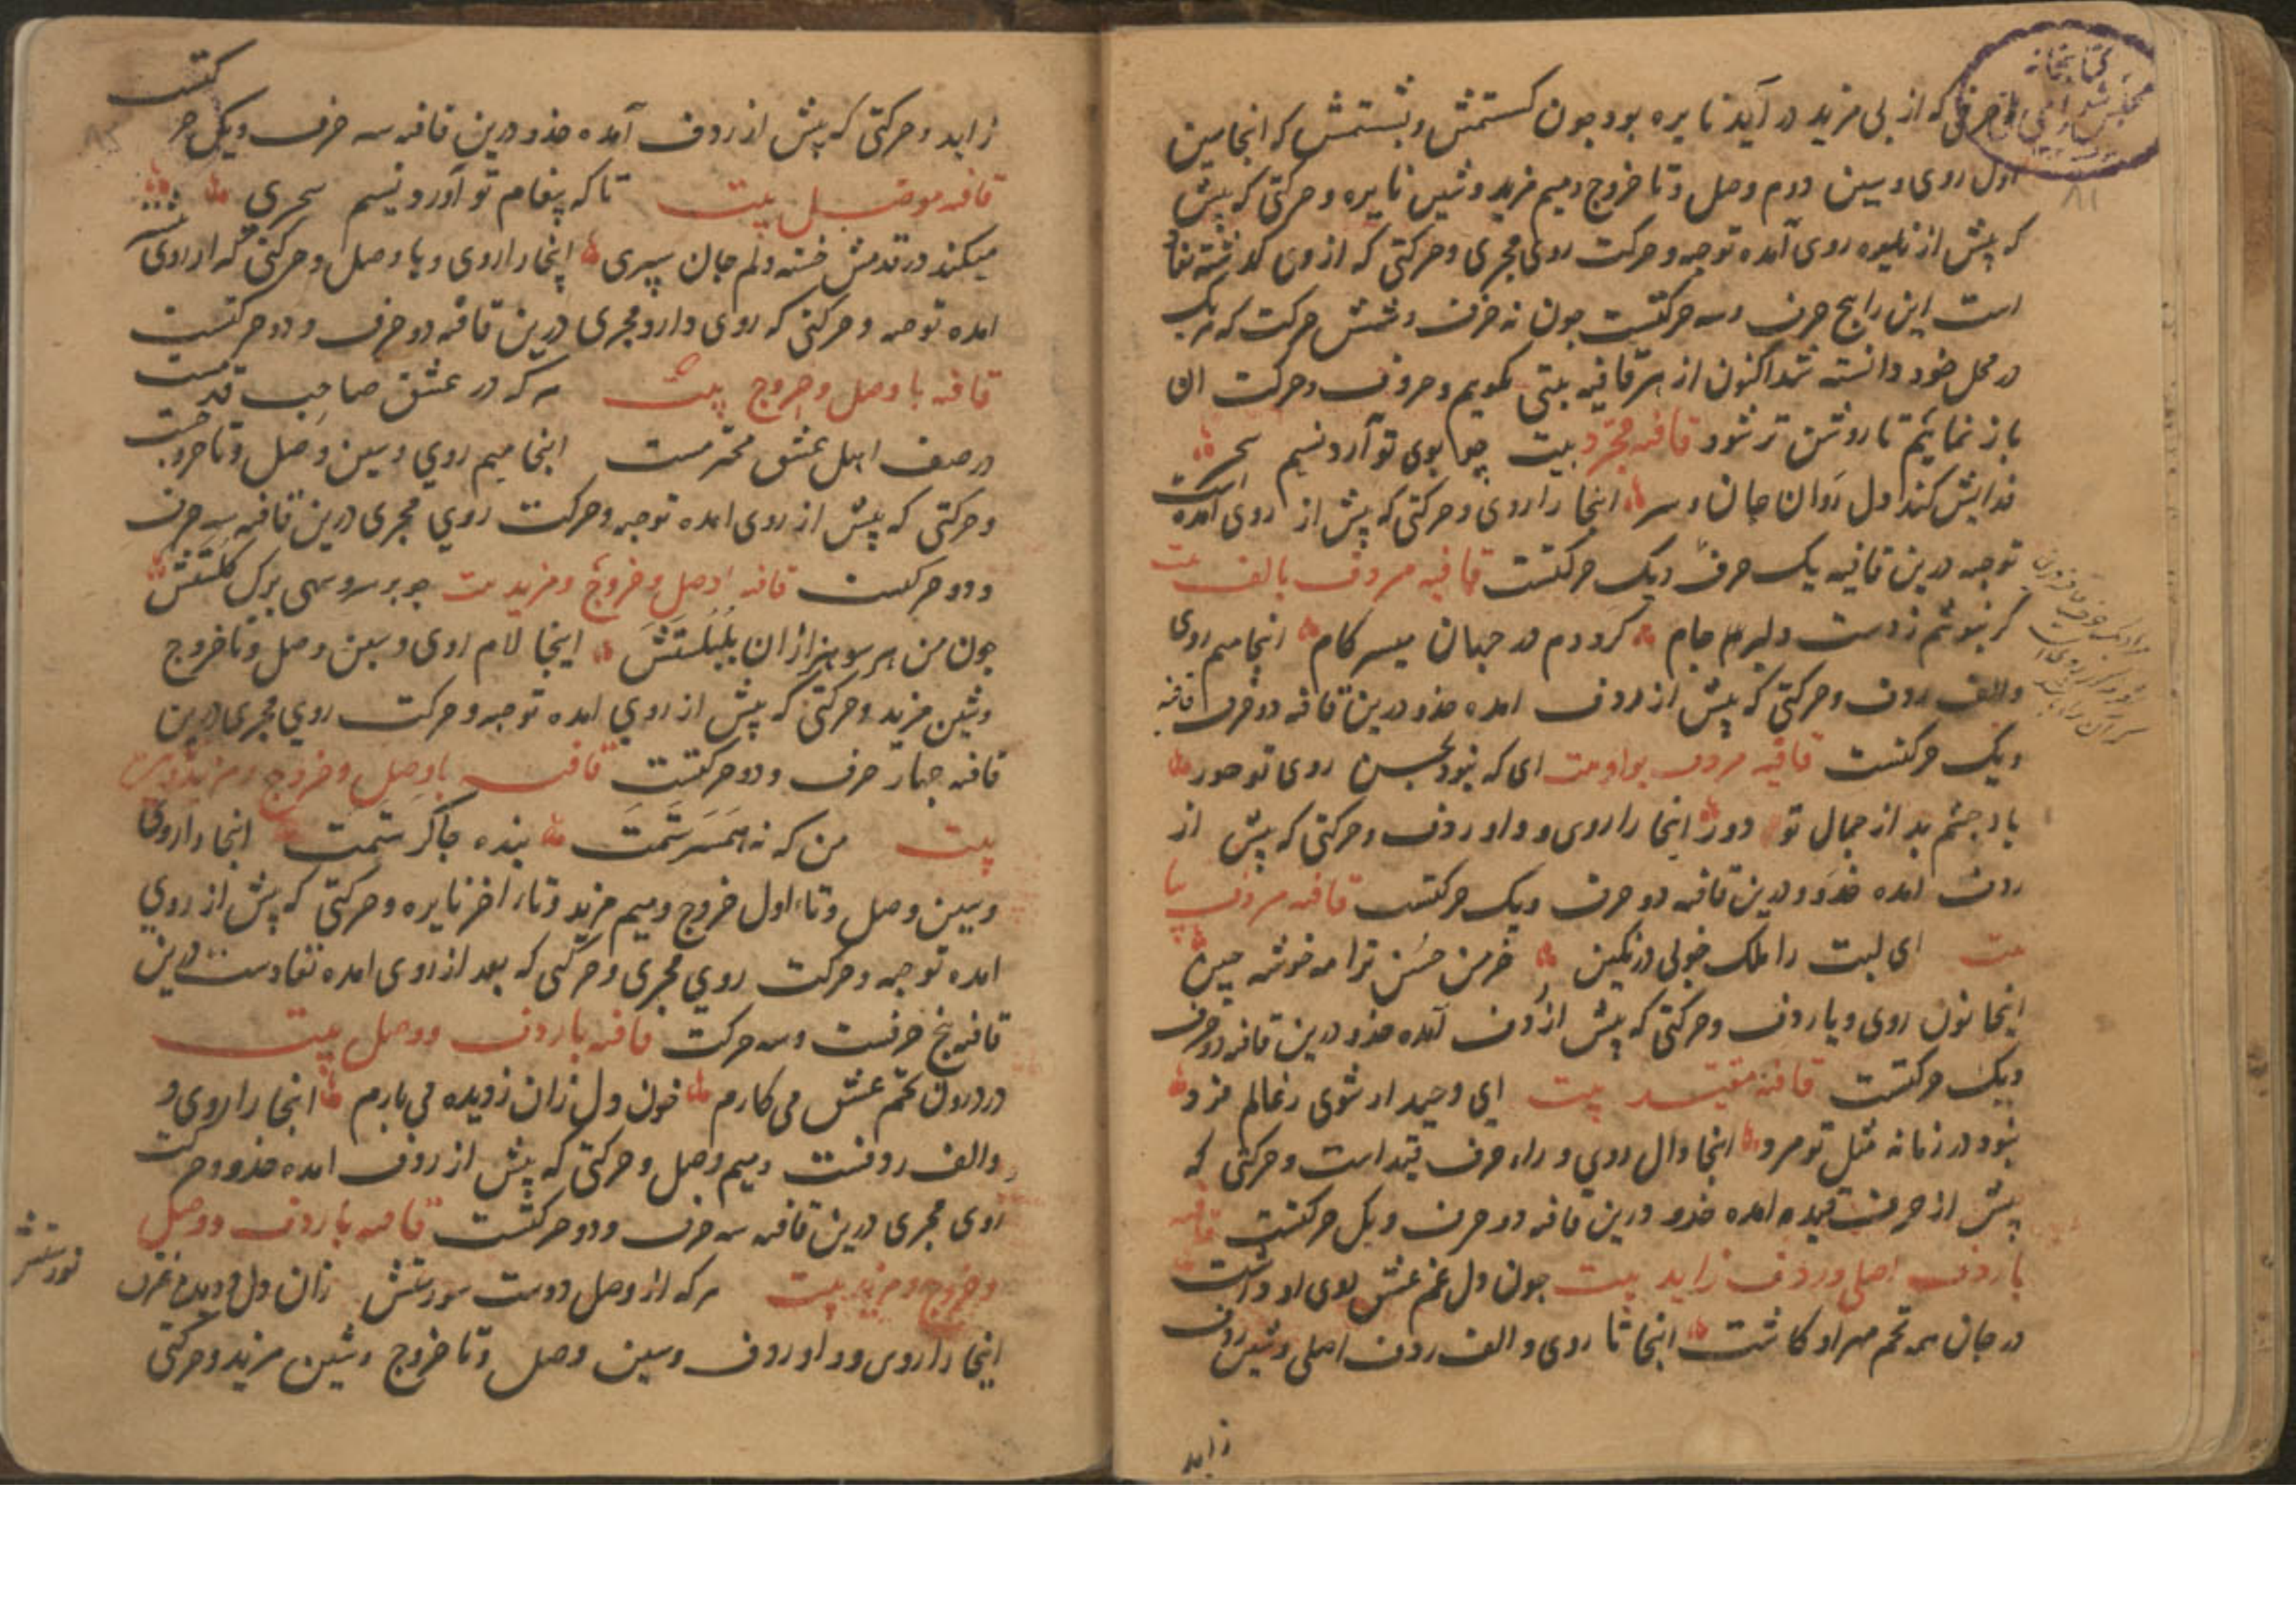 حرفی که از پی مزید در آید نایره بود چون کستمش و بشستمش که اینجا سین
اول روی و سین دوم وصل و تا خروج و میم مزید و شین نایره و حرکتی که پیش
که پیش از روی آمده توجیه و حرکت روی مجری و حرکتی که از وی گذشته نفا
است این را پنج حرف و سه حرکتست چون نه حرف و شش حرکت که هر یک
در محل خود دانسته شد اکنون از هر قافیه بیتی بگویم و حروف و حرکت ان
باز نمایم تا روشن تر شود قافیه مجرد بیت چو بوی تو آرد نسیم سحر
فدایش کند دل روان جان و سر اینجا را روی و حرکتی که پیش از روی آمده است
توجیه درین قافیه یک حرف و یک حرکتست قافیه مردف بالف بیت
گر بنوشم ز دست دلبر جام گرددم در جهان میسر کام اینجا میم روی
والف ردف و حرکتی که پیش از ردف امده حذو درین قافیه دو حرف
و یک حرکتست قافیه مردف بواو بیت ای که نبود بحسن روی تو حور
باد چشم بد از جمال تو دور اینجا را روی و واو ردف و حرکتی که پیش از
ردف امده حذو و درین قافیه دو حرف و یک حرکتست قافیه مردف بیا
بیت ای لبت را ملک خوبی در نگین خرمن حسن ترا مه خوشه چین
اینجا نون روی و یا ردف و حرکتی که پیش از ردف آمده حذو درین قافیه دو حرف
و یک حرکتست قافیه مقید بیت ای وحید ار شوی ز عالم فرد
نبود در زمانه مثل تو مرد اینجا دال روی و راء حرف قید است و حرکتی که
پیش از حرف قید امده حذو درین قافیه دو حرف و یک حرکتست قافیه
با ردف اصلی و ردف زاید بیت چون دل غم عشق بوی او داشت
در جان همه تخم مهر او کاشت اینجا تا روی و الف ردف اصلی و شین ردف
زاید
زاید و حرکتی که پیش از ردف آمده حذو درین قافیه سه حرف و یک حر
کتست
قافیه موصل بیت تا که پیغام تو آورد نسیم سحری
میکند در قدمش خسته دلم جان سپری اینجا را روی و یا وصل و حرکتی که از روی پیش
امده توجیه و حرکتی که روی دارد مجری درین قافیه دو حرف و دو حرکتست
قافیه با وصل و خروج بیت هر که در عشق صاحب قدمست
در صف اهل عشق محترمست اینجا میم روی و سین وصل و تا خروجست
و حرکتی که پیش از روی امده توجیه و حرکت روی مجری درین قافیه سه حرف
و دو حرکتست قافیه با وصل و خروج و مزید بیت چو بر سرو سهی برک کلستش
چون من هر سو هزاران بلبلستش اینجا لام روی و سین وصل و تا خروج
و شین مزید و حرکتی که پیش از روی امده توجیه و حرکت روی مجری درین
قافیه چهار حرف و دو حرکتست قافیه با وصل و خروج و مزید و
بیت من که نه همسرستمت بنده چاکرستمت اینجا را روی
و سین وصل و تاء اول خروج و میم مزید و تاء اخر نایره و حرکتی که پیش از روی
امده توجیه و حرکت روی مجری و حرکتی که بعد از روی امده نفادست درین
قافیه پنج حرفست و سه حرکت قافیه با ردف و وصل بیت
در درون تخم عشق می کارم خون دل زان ز دیده می بارم اینجا را روی و
والف ردفست و میم وصل و حرکتی که پیش از ردف امده حذو و حرکت
روی مجری درین قافیه سه حرف و دو حرکتست قافیه با ردف و وصل
و خروج و مزید بیت هر که از وصل دوست سورستش زان دل و دیده غرق
نورستش
اینجا را روی و واو ردف و سین وصل و تا خروج و شین مزید و حرکتی